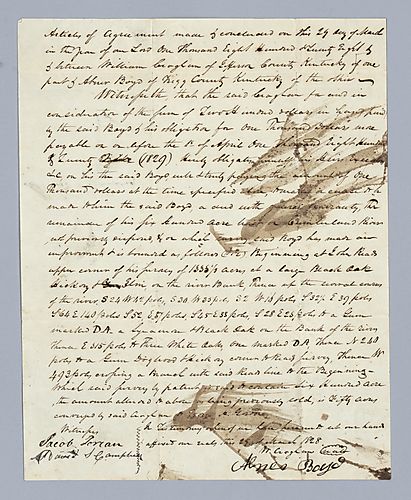 Articles of Agreement made & concluded on this 24 day of March
in the year of our Lord One Thousand Eight Hundred & Twenty Eight by &
between William Croghan of Jefferson County Kentucky of one
part & Abner Boyd of Trigg County Kentucky of the other
Witnesseth that the said Croghan for and in
consideration of the sum of Two Hundred dollars in hand paid
by the said Boyd & his obligation for One Thousand Dollars more
payable on or before the 1st of April One Thousand Eight Hundred
& Twenty (1829) hereby obligates himself his Heirs
&c, on his the said Boyd well & truly paying the amount of One
Thousand dollars at the time specified
made to him the said Boyd a deed with
remainder of his six Hundred acre tract on Cumberland River
not previously disposed of & on which survey said Boyd has made an
improvement & is bounded as follows Beginning at John Reads
upper corner of his survey of 1333 1/3 acres at a large Black Oak
Hickory & Elm on the river Bank Thence up the several courses
of the river, S 24 W 42 pols, S 30 W 23 pols, S 2 W 16 pols S 32 E 39 pols
S 64 E 140 pols S 52 E 57 pols S 25 E 33 pols, S 28 E 26 pols to a Gum
marked D.A. a Sycamore & Black Oak on the Bank of the river
Thence E 315 pols to Three White Oaks One marked D.A Thence N 240
pols to a Gum Dogwood & Hickory corner to Reads survey, Thence W
493 pols crossing a Branch with said Reads line to the Beginning
Which said survey by patent is said to contain Six Hundred acres
the amount alluded to above as being previously sold, is Fifty acres
conveyed by said Croghan to
Witness
In Testimony whereof we have hereunto set our hands
affixed our seals this 24 March 1828
Jacob Torian
David S Campbell
W Croghan
Abner Boyd